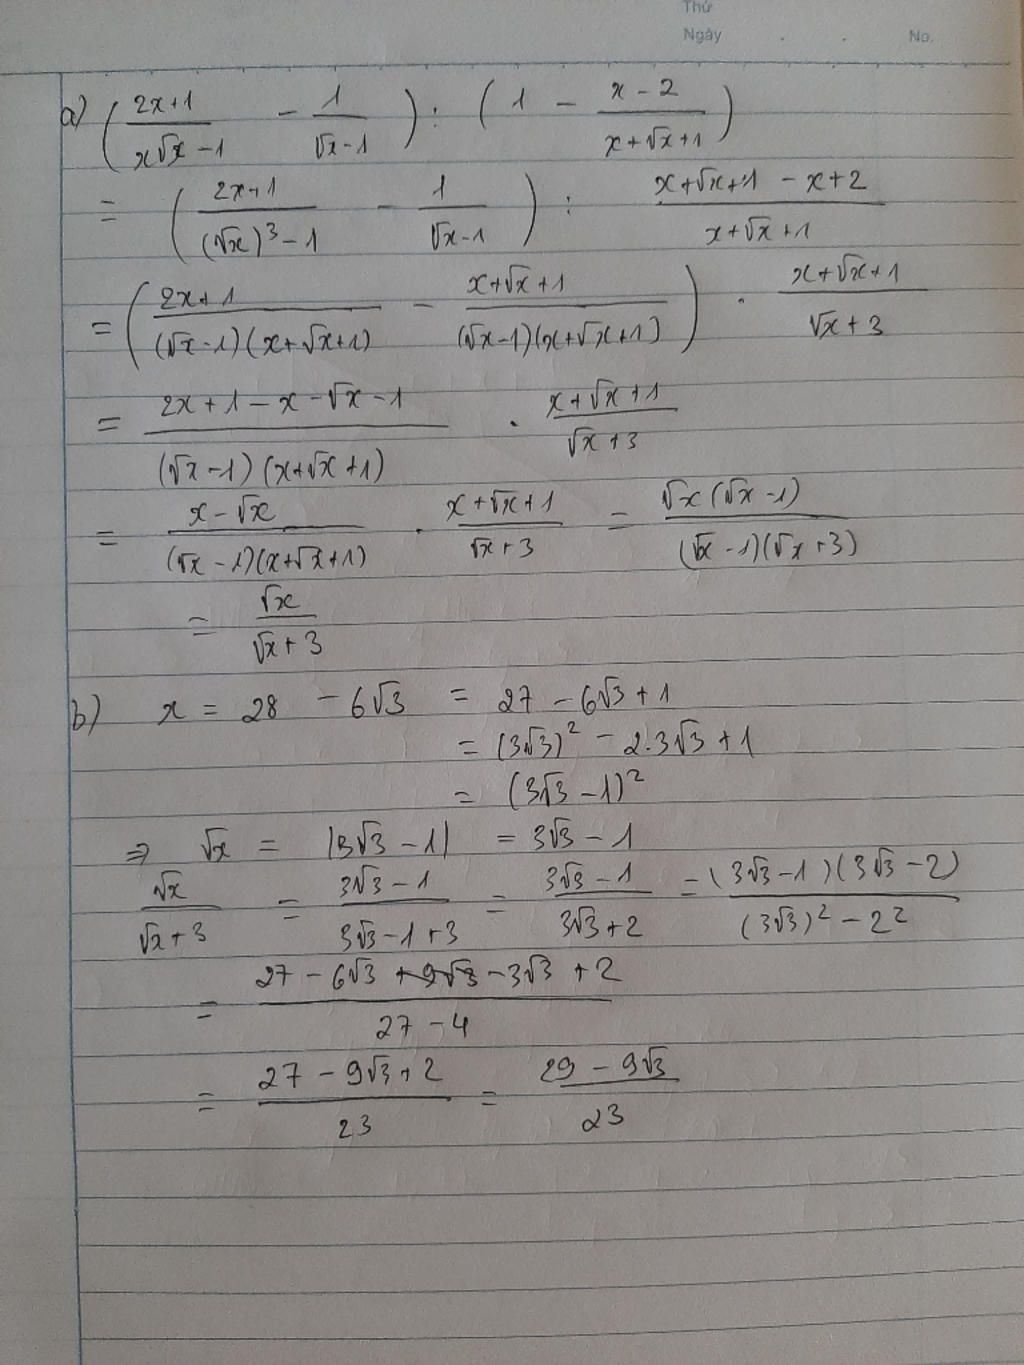 Thứ
Ngày . . No.
a) ( (2x+1)/(x√x − 1) − 1/(√x − 1) ) : ( 1 − (x − 2)/(x+√x+1) )
= ( (2x+1)/((√x)³ − 1) − 1/(√x−1) ) : (x+√x+1 − x+2)/(x+√x+1)
= ( (2x+1)/((√x−1)(x+√x+1)) − (x+√x+1)/((√x−1)(x+√x+1)) ) · (x+√x+1)/(√x+3)
= (2x+1−x−√x−1)/((√x−1)(x+√x+1)) · (x+√x+1)/(√x+3)
= (x−√x)/((√x−1)(x+√x+1)) · (x+√x+1)/(√x+3) = (√x(√x−1))/((√x−1)(√x+3))
= √x/(√x+3)
b) x = 28 − 6√3 = 27 − 6√3 + 1
= (3√3)² − 2.3√3 + 1
= (3√3 − 1)²
⇒ √x = |3√3 − 1| = 3√3 − 1
√x/(√x+3) = (3√3−1)/(3√3−1+3) = (3√3−1)/(3√3+2) = ((3√3−1)(3√3−2))/((3√3)² − 2²)
= (27 − 6√3 − 3√3 + 2)/(27 − 4)
= (27 − 9√3 + 2)/23 = (29 − 9√3)/23